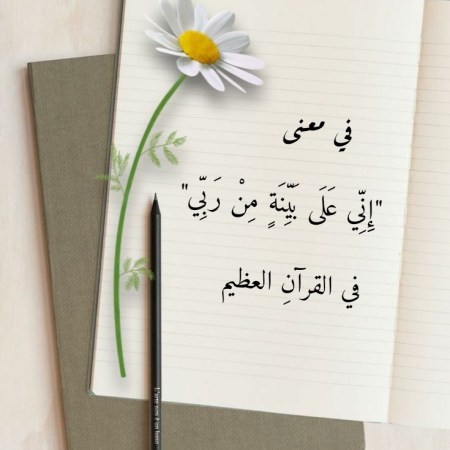 في معنى
"إِنِّي عَلَى بَيِّنَةٍ مِنْ رَبِّي"
في القرآنِ العظيم